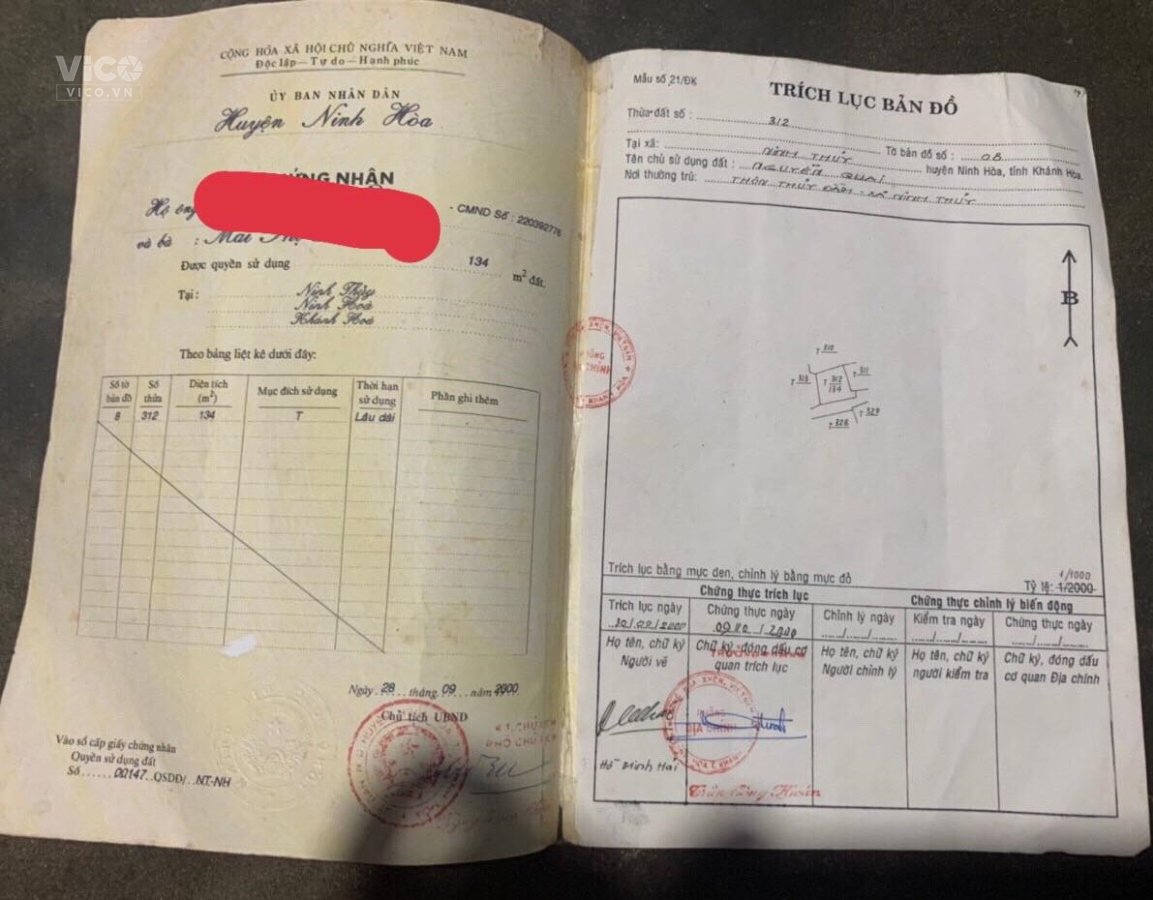 ViCO
VICO.VN
CỘNG HÒA XÃ HỘI CHỦ NGHĨA VIỆT NAM
Độc lập - Tự do - Hạnh phúc
ỦY BAN NHÂN DÂN
Huyện Ninh Hòa
NHẬN
Hộ ông
- CMND Số : 220392776
và bà : Mai Thị
Được quyền sử dụng 134 m² đất.
Tại : Ninh Thủy
Ninh Hoà
Khánh Hoà
Theo bảng liệt kê dưới đây:
Số tờ bản đồ Số thửa Diện tích (m²) Mục đích sử dụng Thời hạn sử dụng Phần ghi thêm
8 312 134 T Lâu dài
Ngày 28 tháng 09 năm 2000
Chủ tịch UBND
K.T. CHỦ TỊCH
PHÓ CHỦ TỊCH
Vào sổ cấp giấy chứng nhận
Quyền sử dụng đất
Số 00147 QSDĐ/ NT-NH
Mẫu số 21/ĐK
TRÍCH LỤC BẢN ĐỒ
Thửa đất số : 312
Tại xã: NINH THỦY Tờ bản đồ số : 08
Tên chủ sử dụng đất : NGUYỄN QUAI huyện Ninh Hòa, tỉnh Khánh Hòa
Nơi thường trú: THÔN THỦY ĐẦM - XÃ NINH THỦY
B
T 310
T 313
T 312
134
T 311
T 327
T 328
Trích lục bằng mực đen, chỉnh lý bằng mực đỏ
1/1000
Tỷ lệ: 1/2000
Chứng thực trích lục Chứng thực chỉnh lý biến động
Trích lục ngày Chứng thực ngày Chỉnh lý ngày Kiểm tra ngày Chứng thực ngày
/2000 /2000
Họ tên, chữ ký Người vẽ
Chữ ký, đóng dấu cơ quan trích lục
Họ tên, chữ ký Người chỉnh lý
Họ tên, chữ ký người kiểm tra
Chữ ký, đóng dấu cơ quan Địa chính
ĐỊA CHÍNH
Hồ Minh Hải
Trần Công Huân